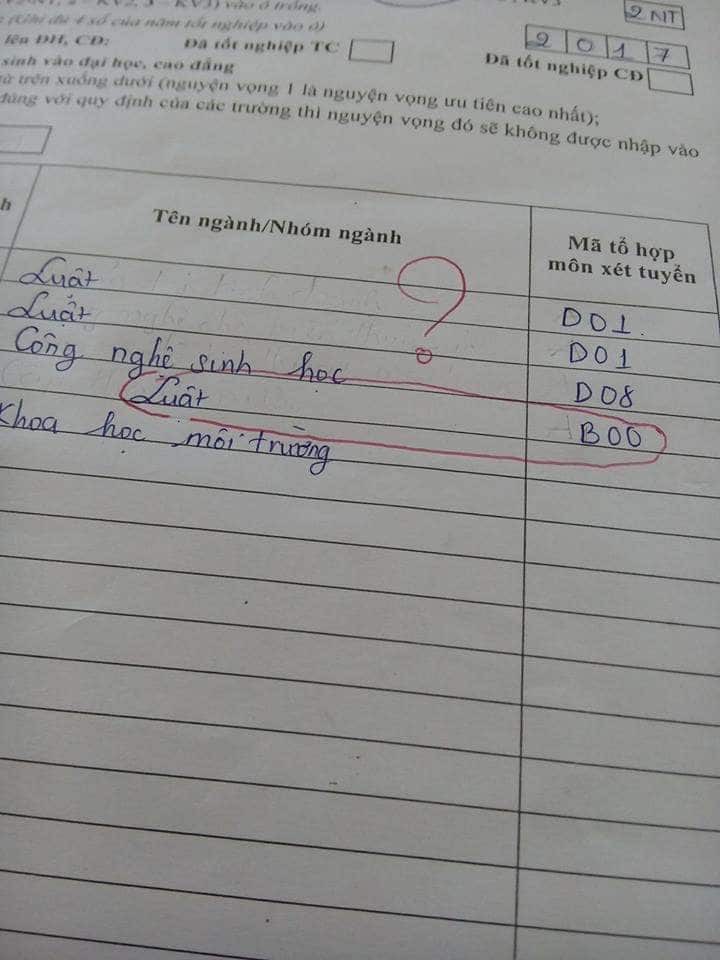 KV3) vào ô trống.
2NT
(Ghi đủ 4 số của năm tốt nghiệp vào ô)
2017
lên ĐH, CĐ:
Đã tốt nghiệp TC
Đã tốt nghiệp CĐ
sinh vào đại học, cao đẳng
từ trên xuống dưới (nguyện vọng 1 là nguyện vọng ưu tiên cao nhất);
đúng với quy định của các trường thì nguyện vọng đó sẽ không được nhập vào
h
Tên ngành/Nhóm ngành
Mã tổ hợp
môn xét tuyển
Luật
D01.
Luật
D01
?
Công nghệ sinh học
D08
Luật
B00
Khoa học môi trường